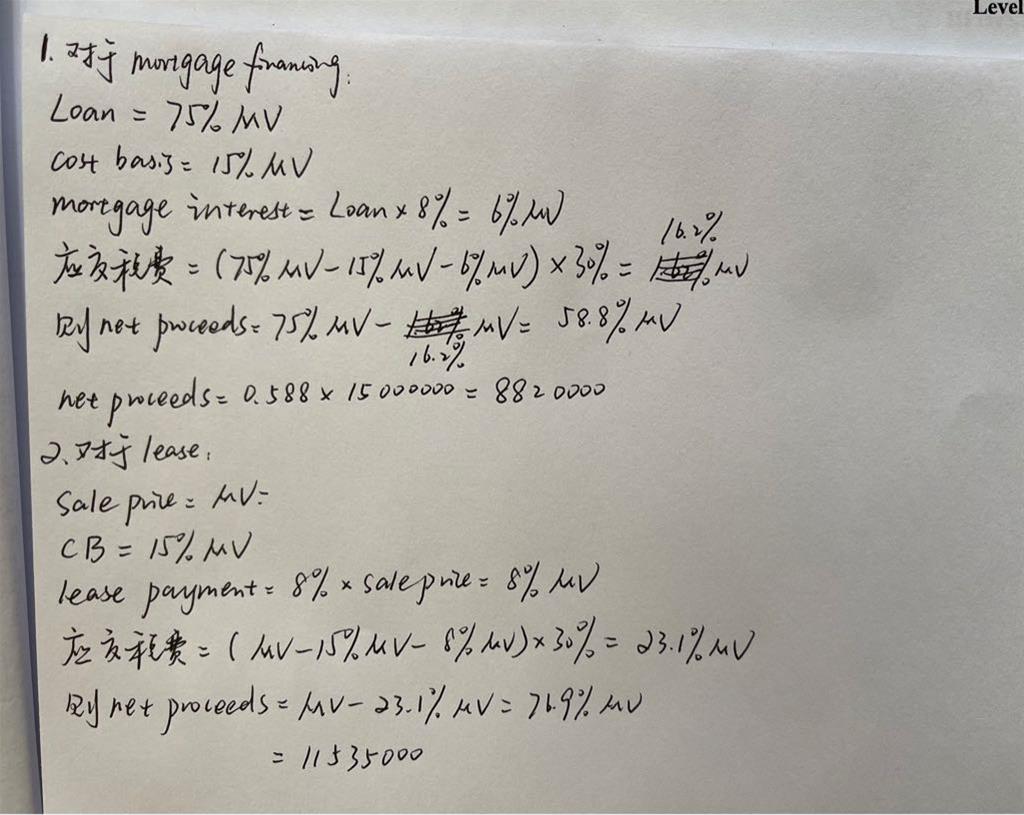 Level
1. 对于 mortgage financing:
Loan = 75% MV
cost basis = 15% MV
mortgage interest = Loan × 8% = 6% MV
应交税费 = (75% MV - 15% MV - 6% MV) × 30% = 16.2% MV
则 net proceeds = 75% MV - 16.2% MV = 58.8% MV
net proceeds = 0.588 × 15000000 = 8820000
2、对于 lease:
Sale price = MV=
CB = 15% MV
lease payment = 8% × sale price = 8% MV
应交税费 = (MV - 15% MV - 8% MV) × 30% = 23.1% MV
则 net proceeds = MV - 23.1% MV = 76.9% MV
= 11535000